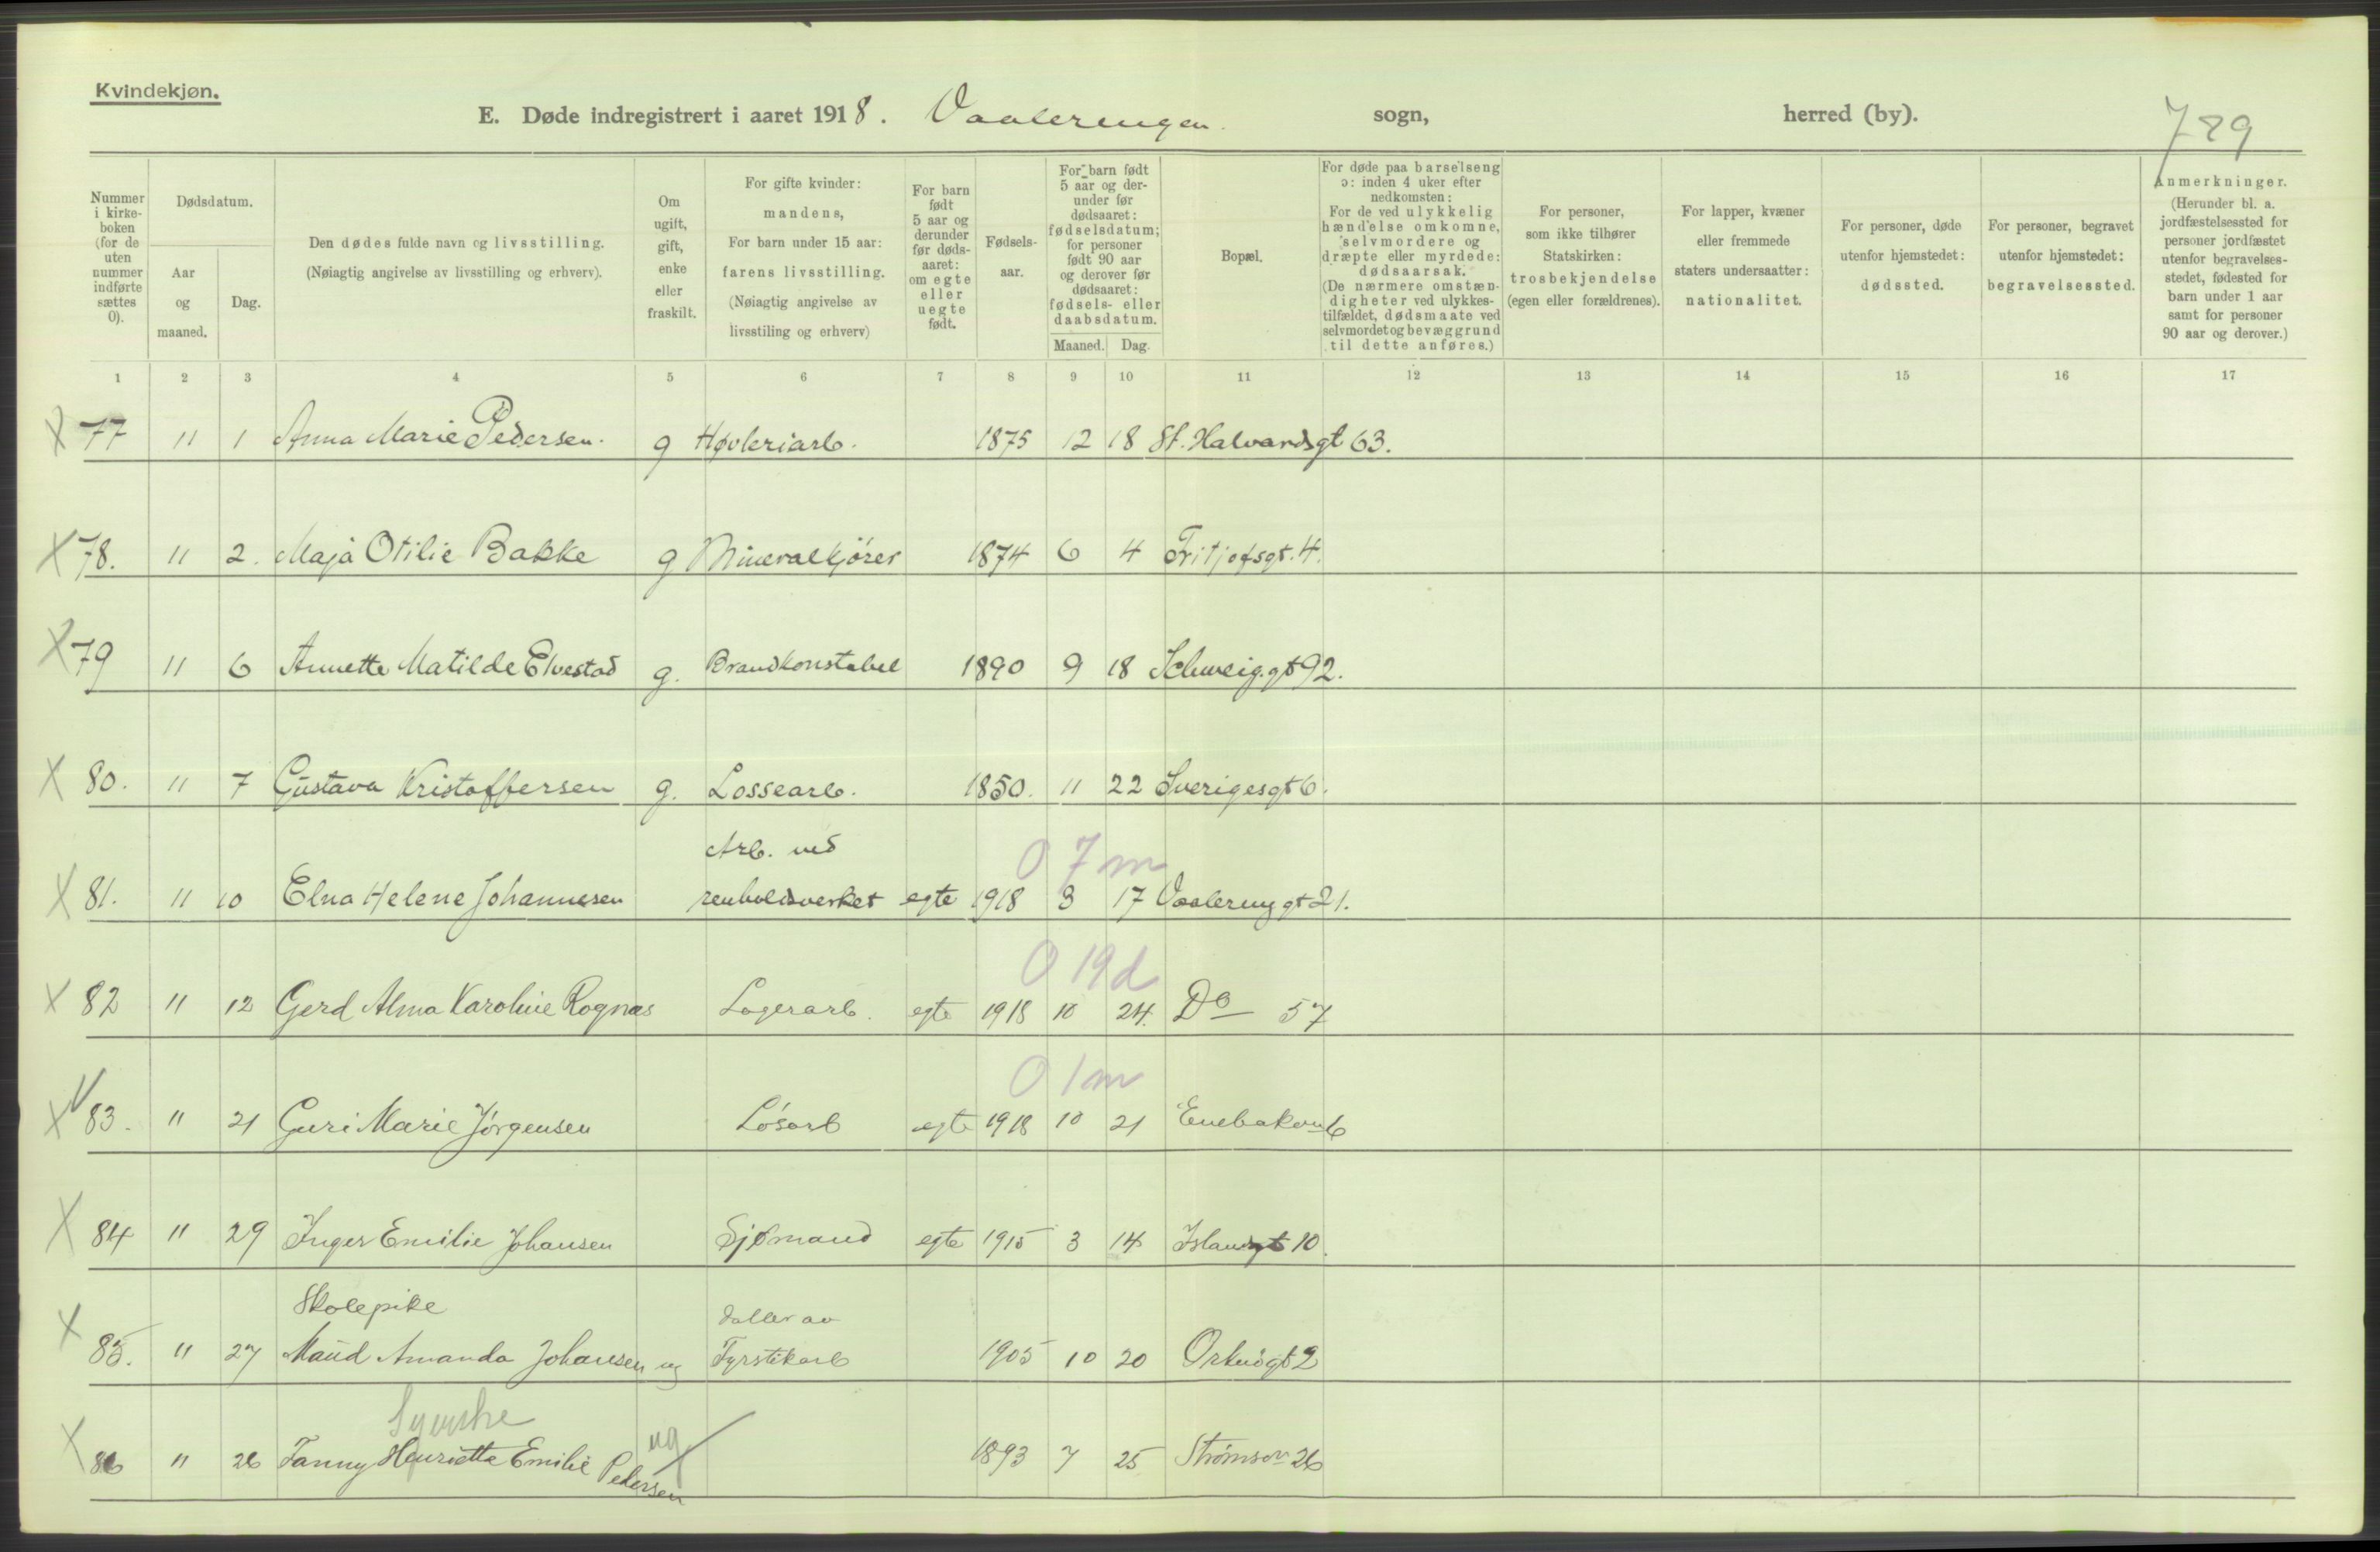 Kvindekjøn.
E. Døde indregistrert i aaret 1918. Vaalerengen. sogn, herred (by). 789
Nummer i kirke- boken (for de uten nummer indførte sættes 0).
Dødsdatum.
Aar og maaned.
Dag.
Den dødes fulde navn og livsstilling.
(Nøiagtig angivelse av livsstilling og erhverv).
Om ugift, gift, enke eller fraskilt.
For gifte kvinder: mandens,
For barn under 15 aar: farens livsstilling.
(Nøiagtig angivelse av livsstiling og erhverv)
For barn født 5 aar og derunder før døds- aaret: om egte eller uegte født.
Fødsels- aar.
For barn født 5 aar og der- under før dødsaaret: fødselsdatum; for personer født 90 aar og derover før dødsaaret: fødsels- eller daabsdatum.
Maaned. Dag.
Bopæl.
For døde paa barselseng ɔ: inden 4 uker efter nedkomsten:
For de ved ulykkelig hændelse omkomne, selvmordere og dræpte eller myrdede: dødsaarsak.
(De nærmere omstæn- digheter ved ulykkes- tilfældet, dødsmaate ved selvmordet og bevæggrund til dette anføres.)
For personer, som ikke tilhører Statskirken: trosbekjendelse (egen eller forældrenes).
For lapper, kvæner eller fremmede staters undersaatter: nationalitet.
For personer, døde utenfor hjemstedet: dødssted.
For personer, begravet utenfor hjemstedet: begravelsessted.
Anmerkninger.
(Herunder bl. a. jordfæstelsessted for personer jordfæstet utenfor begravelses- stedet, fødested for barn under 1 aar samt for personer 90 aar og derover.)
1 2 3 4 5 6 7 8 9 10 11 12 13 14 15 16 17
X 77 11 1 Anna Marie Pedersen. g Høvleriarb. 1875 12 18 St. Halvardsgt 63.
X 78. 11 2. Maja Otilie Bakke g Mineralkjører 1874 6 4 Fritjofsgt. 4.
X 79 11 6 Annette Matilde Elvestad g. Brandkonstabel 1890 9 18 Schweig.gt 92.
X 80. 11 7 Gustava Kristoffersen g. Lossearb. 1850. 11 22 Sverigesgt 6.
Arb. ved 0 7 m
X 81. 11 10 Elna Helene Johannesen renholdsverket egte 1918 3 17 Vaalerenggt 21.
0 19 d
X 82 11 12 Gerd Alma Karoline Rognas Lagerarb. egte 1918 10 24. Do 57
0 1 m
X 83. " 21 Guri Marie Jørgensen Løsarb egte 1918 10 21 Enebakvn 6
X 84 " 29 Inger Emilie Johansen Sjømand egte 1915 3 14 Islandsgt 10.
Skolepike datter av
X 85. " 27 Maud Amanda Johansen ug Fyrstikarb 1905 10 20 Orknøgt 2
Syerske ug
X 86 " 26 Fanny Henriette Emilie Pedersen 1893 7 25 Strømsvn 26